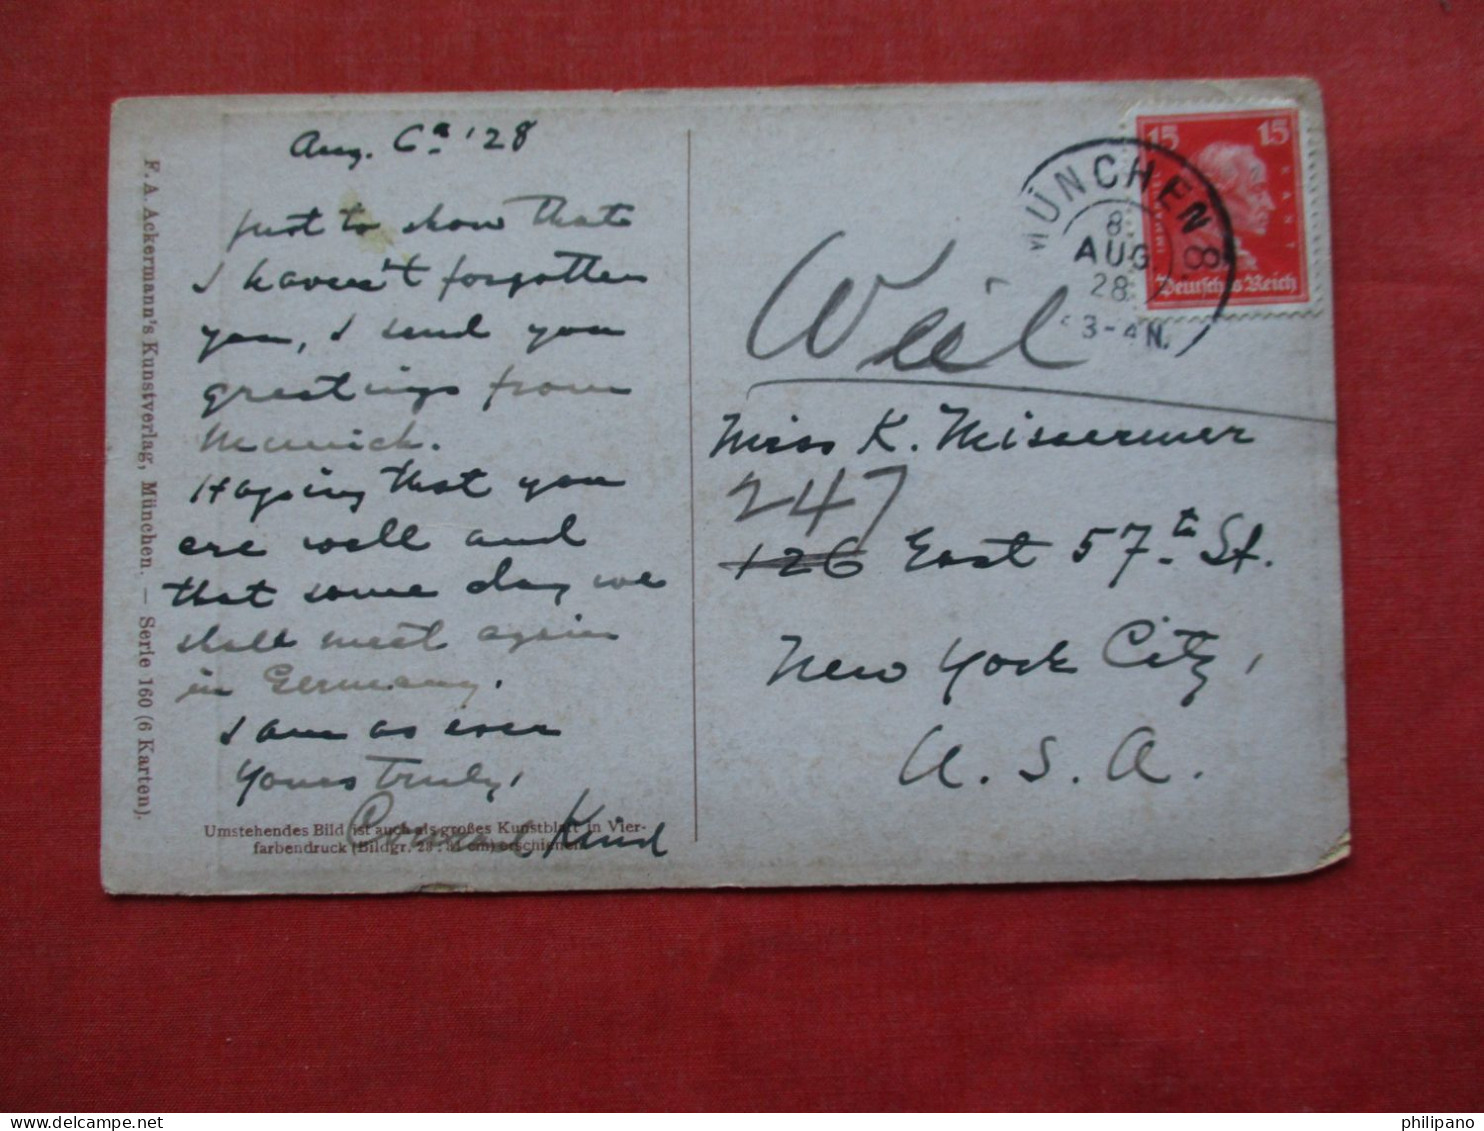 F. A. Ackermann's Kunstverlag, München. — Serie 160 (6 Karten).
Aug. 6th '28
Just to show that
I haven't forgotten
you, I send you
greetings from
Munich.
Hoping that you
are well and
that some day we
shall meet again
in Germany.
I am as ever
Yours Truly,
Kind
Umstehendes Bild ist auch als großes Kunstblatt in Vier-
farbendruck (Bildgr. 28 : 31 cm) erschienen.
MÜNCHEN 8
8.
AUG
28
3-4 N.
15 15
KANT
Deutsches Reich
Weil
Miss K. Missermer
247
126 East 57th St.
New York City,
U. S. A.
philipano